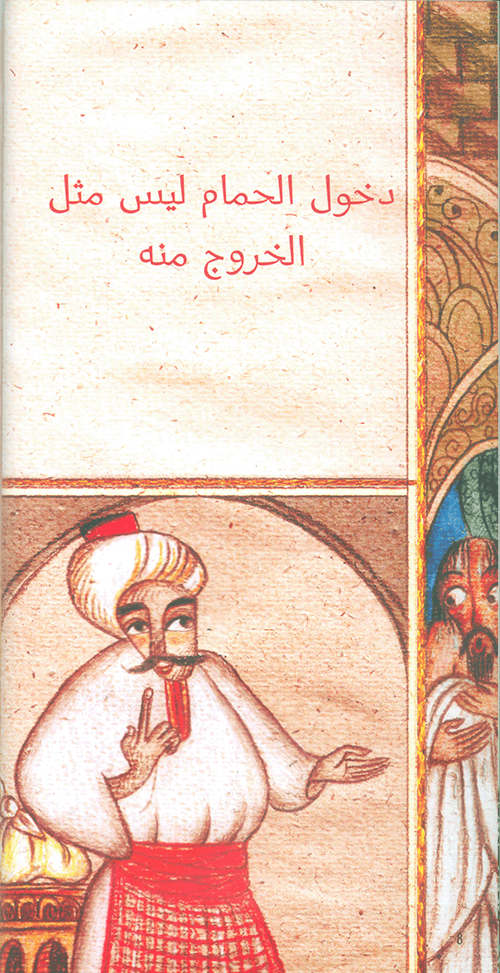 دخول الحمام ليس مثل
الخروج منه
8